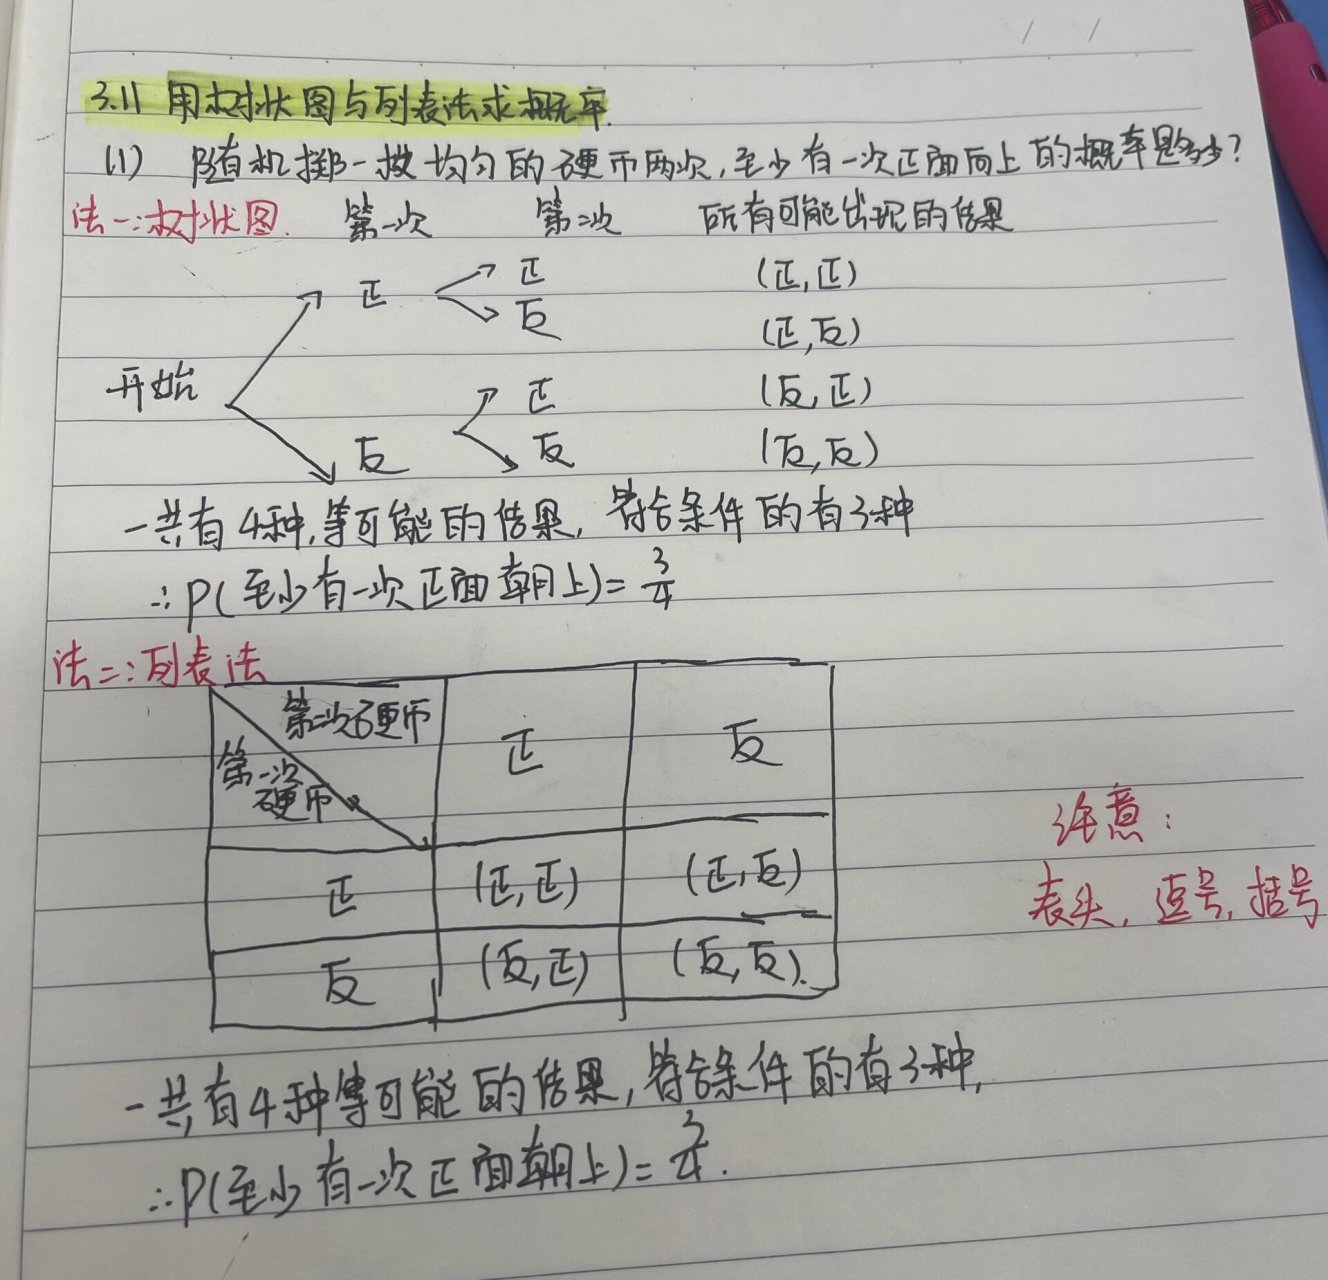 3.11 用树状图与列表法求概率.
(1) 随机掷一枚均匀的硬币两次,至少有一次正面向上的概率是多少?
法一:树状图. 第一次 第二次 所有可能出现的结果
正 (正,正)
正
反 (正,反)
开始
正 (反,正)
反
反 (反,反)
一共有4种,等可能的结果,符合条件的有3种
∴P(至少有一次正面朝上)=3/4
法二:列表法
第二次硬币 正 反
第一次
硬币
正 (正,正) (正,反)
反 (反,正) (反,反).
注意:
表头,逗号,括号
一共有4种等可能的结果,符合条件的有3种,
∴P(至少有一次正面朝上)=3/4.